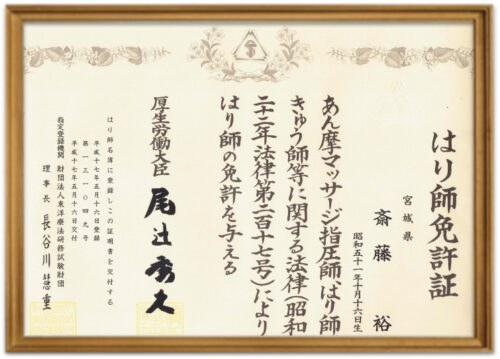 はり師免許証
宮城県
斎藤 裕
昭和五十一年十月十六日生
あん摩マッサージ指圧師、はり師
きゅう師等に関する法律(昭和
二十二年法律第二百十七号)により
はり師の免許を与える
厚生労働大臣 尾辻秀久
はり師名簿に登録しこの証明書を交付する
平成十七年五月十六日登録
第一三一〇四九号
平成十七年五月十六日交付
指定登録機関 財団法人東洋療法研修試験財団
理事長 長谷川慧重